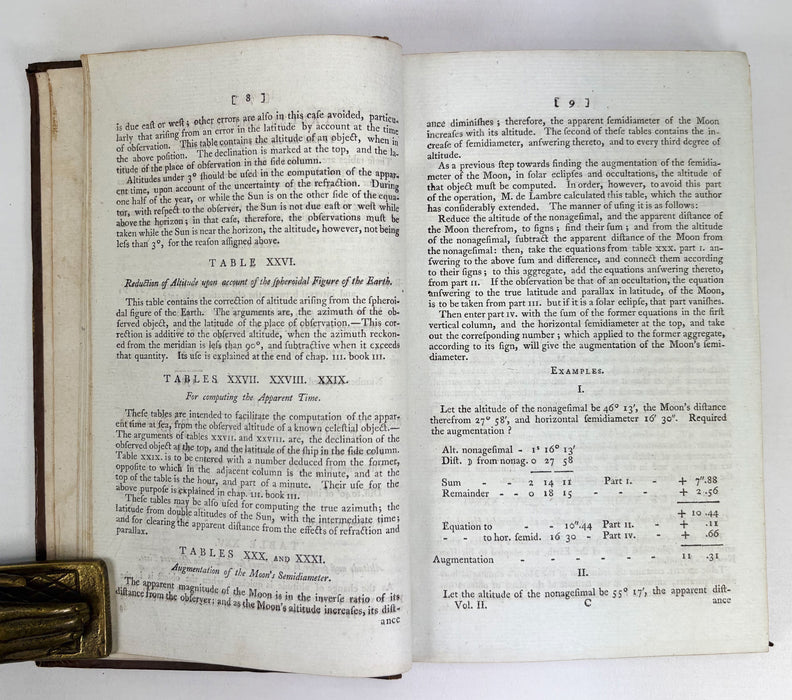 [ 8 ]
is due eaſt or weſt; other errors are alſo in this caſe avoided, particu-
larly that ariſing from an error in the latitude by account at the time
of obſervation. This table contains the altitude of an object, when in
the above poſition. The declination is marked at the top, and the la-
titude of the place of obſervation in the ſide column.
Altitudes under 3° ſhould be uſed in the computation of the appar-
ent time, upon account of the uncertainty of the refraction. During
one half of the year, or while the Sun is on the other ſide of the equa-
tor, with reſpect to the obſerver, the Sun is not due eaſt or weſt while
above the horizon; in that caſe, therefore, the obſervations muſt be
taken while the Sun is near the horizon, the altitude, however, not being
leſs than 3°, for the reaſon aſſigned above.
TABLE XXVI.
Reduction of Altitude upon account of the ſpheroidal Figure of the Earth.
This table contains the correction of altitude ariſing from the ſpheroi-
dal figure of the Earth. The arguments are, the azimuth of the ob-
ſerved object, and the latitude of the place of obſervation.—This cor-
rection is additive to the obſerved altitude, when the azimuth reckon-
ed from the meridian is leſs than 90°, and ſubtractive when it exceeds
that quantity. Its uſe is explained at the end of chap. III. book III.
TABLES XXVII. XXVIII. XXIX.
For computing the Apparent Time.
Theſe tables are intended to facilitate the computation of the appar-
ent time at ſea, from the obſerved altitude of a known celeſtial object.—
The arguments of tables XXVII. and XXVIII. are, the declination of the
obſerved object at the top, and the latitude of the ſhip in the ſide column.
Table XXIX. is to be entered with a number deduced from the former,
oppoſite to which in the adjacent column is the minute, and at the
top of the table is the hour, and part of a minute. Their uſe for the
above purpoſe is explained in chap. III. book III.
Theſe tables may be alſo uſed for computing the true azimuth; the
latitude from double altitudes of the Sun, with the intermediate time;
and for clearing the apparent diſtance from the effects of refraction and
parallax.
TABLES XXX. AND XXXI.
Augmentation of the Moon's Semidiameter.
The apparent magnitude of the Moon is in the inverſe ratio of its
diſtance from the obſerver; and as the Moon's altitude increaſes, its diſt-
ance
[ 9 ]
ance diminiſhes; therefore, the apparent ſemidiameter of the Moon
increaſes with its altitude. The ſecond of theſe tables contains the in-
creaſe of ſemidiameter, anſwering thereto, and to every third degree of
altitude.
As a previous ſtep towards finding the augmentation of the ſemidia-
meter of the Moon, in ſolar eclipſes and occultations, the altitude of
that object muſt be computed. In order, however, to avoid this part
of the operation, M. de Lambre calculated this table, which the author
has conſiderably extended. The manner of uſing it is as follows:
Reduce the altitude of the nonageſimal, and the apparent diſtance of
the Moon therefrom, to ſigns; find their ſum; and from the altitude
of the nonageſimal, ſubtract the apparent diſtance of the Moon from
the nonageſimal: then, take the equations from table XXX. part I. an-
ſwering to the above ſum and difference, and connect them according
to their ſigns; to this aggregate, add the equations anſwering thereto,
from part II. If the obſervation be that of an occultation, the equation
anſwering to the true latitude and parallax in latitude, of the Moon,
is to be taken from part III. but if it is a ſolar eclipſe, that part vaniſhes.
Then enter part IV. with the ſum of the former equations in the firſt
vertical column, and the horizontal ſemidiameter at the top, and take
out the correſponding number; which applied to the former aggregate,
according to its ſign, will give the augmentation of the Moon's ſemi-
diameter.
EXAMPLES.
I.
Let the altitude of the nonageſimal be 46° 13′, the Moon's diſtance
therefrom 27° 58′, and horizontal ſemidiameter 16′ 30″. Required
the augmentation?
Alt. nonageſimal - 1ˢ 16° 13′
Diſt. ☽ from nonag. 0 27 58
Sum - - 2 14 11 Part I. - + 7″.88
Remainder - - 0 18 15 - - - + 2 .56
+ 10 .44
Equation to - - 10″.44 Part II. - + .11
- - to hor. ſemid. 16 30 - Part IV. - + .66
Augmentation - - - - - - 11 .31
II.
Let the altitude of the nonageſimal be 55° 17′, the apparent diſt-
Vol. II. C ance